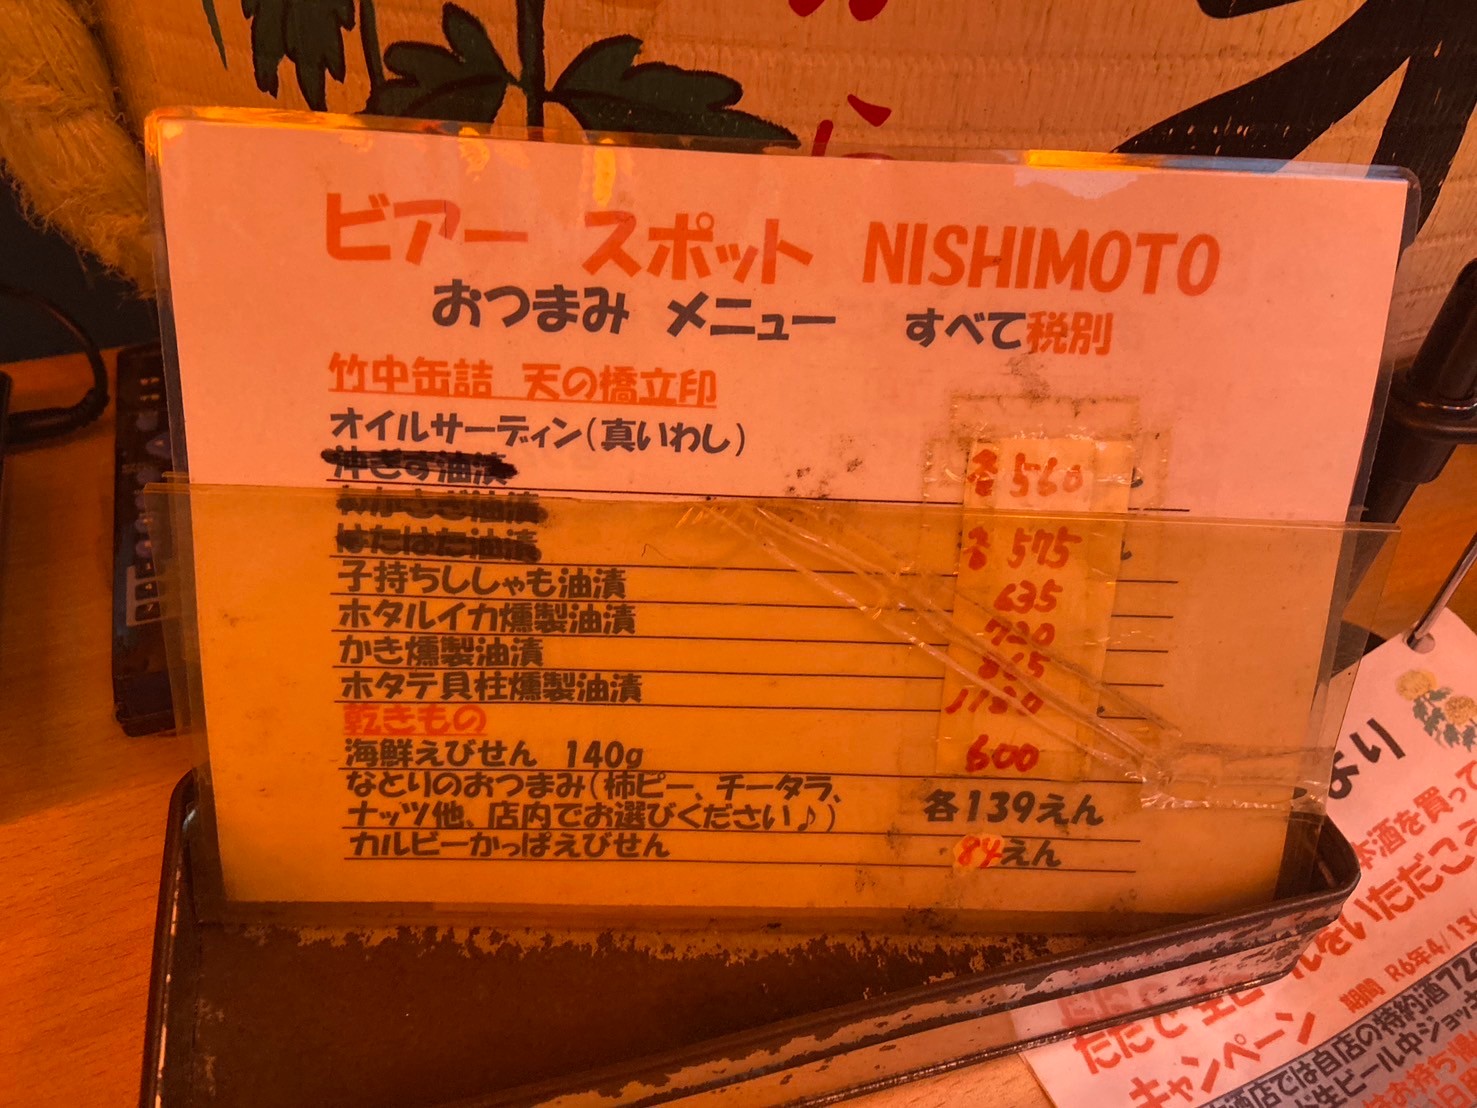 ビアー スポット NISHIMOTO
おつまみ メニュー すべて税別
竹中缶詰 天の橋立印
オイルサーディン(真いわし)
沖ぎす油漬 各560
わかさぎ油漬
はたはた油漬 各575
子持ちししゃも油漬 635
ホタルイカ燻製油漬 720
かき燻製油漬
ホタテ貝柱燻製油漬
乾きもの
海鮮えびせん 140g 600
なとりのおつまみ(柿ピー、チータラ、
ナッツ他、店内でお選びください♪) 各139えん
カルビーかっぱえびせん 84えん
より
本酒を買って
ルをいただこ
キャンペーン
期間 R6年4/13
酒店では自店の特約酒720
ど生ビール中ジョッ